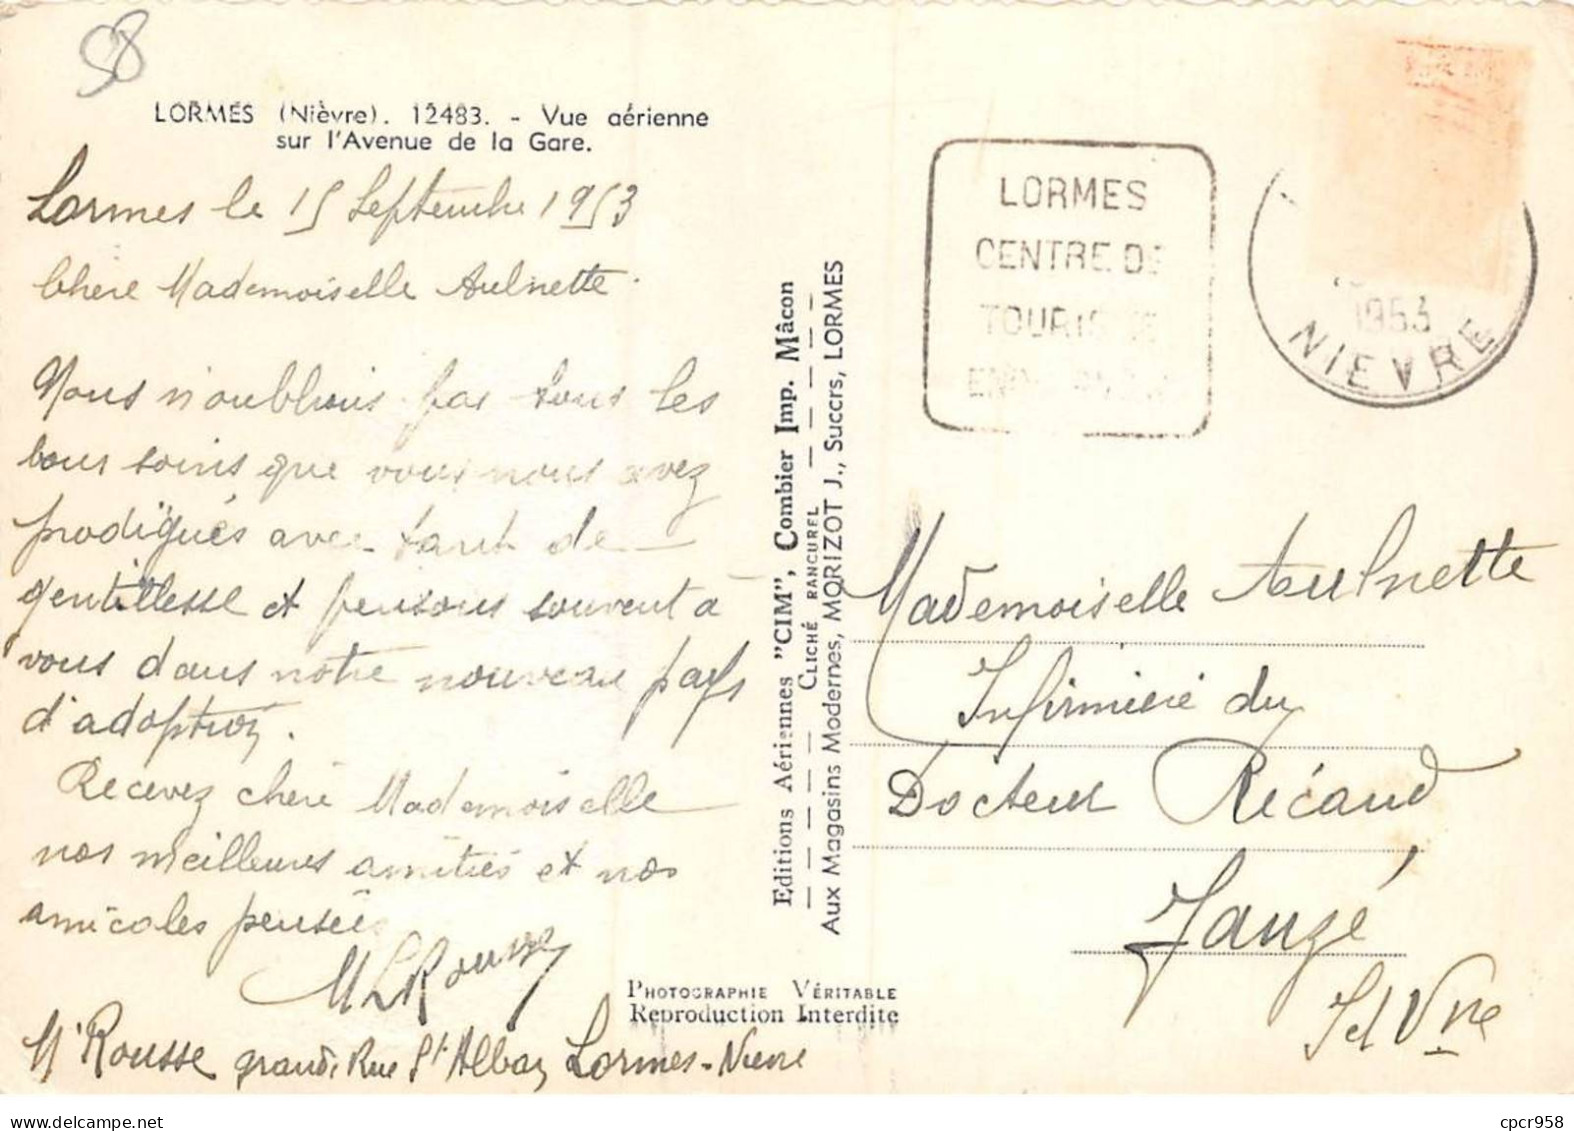 58
LORMES (Nièvre). 12483. - Vue aérienne
sur l'Avenue de la Gare.
Lormes le 15 Septembre 1953
Chère Mademoiselle Aulnette.
Nous n'oublions pas tous les
bons soins que vous nous avez
prodigués avec tant de
gentillesse et pensons souvent à
vous dans notre nouveau pays
d'adoption.
Recevez chère Mademoiselle
nos meilleures amitiés et nos
amicales pensées
MLRousse
Mr Rousse grande Rue St Alban Lormes-Nièvre
Editions Aériennes "CIM", Combier Imp. Mâcon
CLICHÉ RANCUREL
Aux Magasins Modernes, MORIZOT J., Succrs, LORMES
PHOTOGRAPHIE VÉRITABLE
Reproduction Interdite
LORMES
CENTRE DE
TOURISME
1953
NIEVRE
Mademoiselle Aulnette
Infirmière du
Docteur Récaud
Janzé
I et Vne
cpcr958